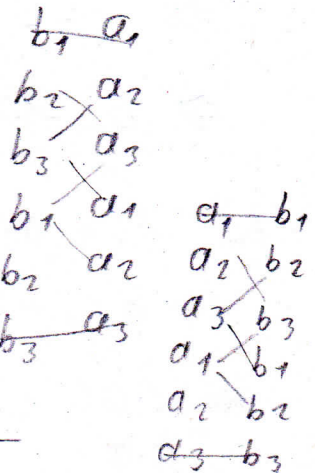 b1 a1
b2 a2
b3 a3
b1 a1
b2 a2
b3 a3
a1 b1
a2 b2
a3 b3
a1 b1
a2 b2
a3 b3